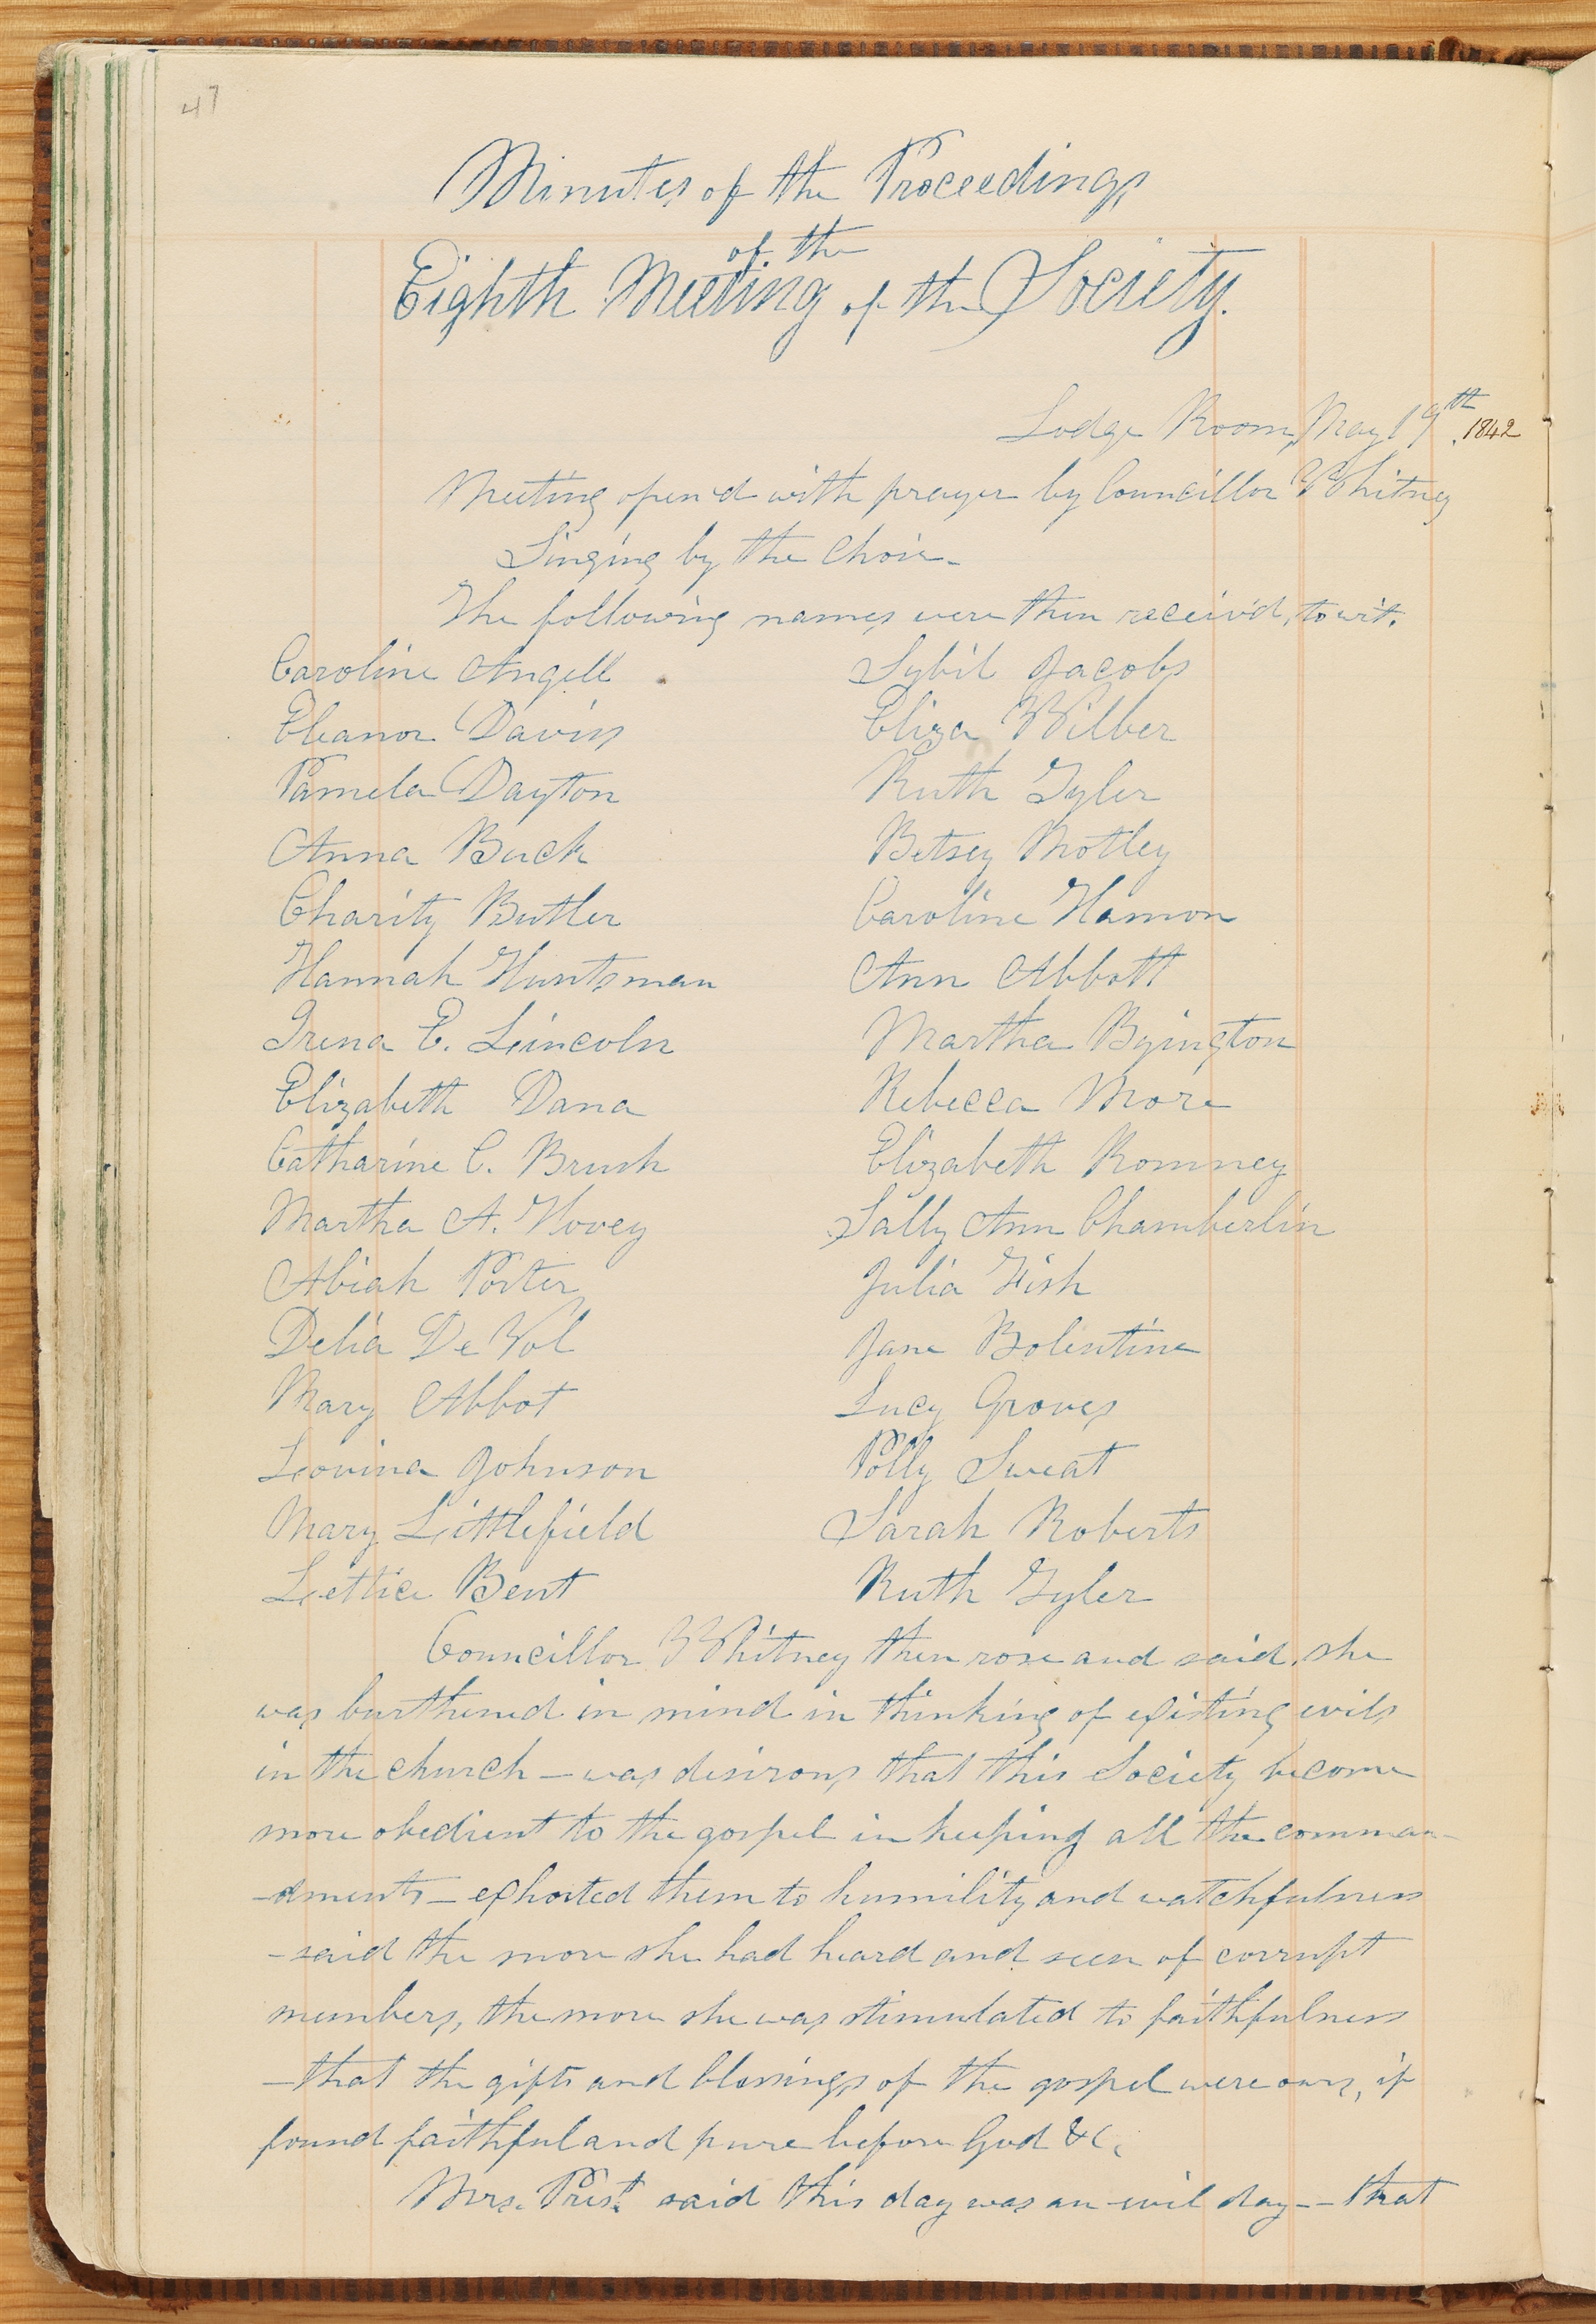 47
Minutes of the Proceedings
of the
Eighth Meeting of the Society.
Lodge Room, May 19th. 1842
Meeting open'd with prayer by Councillor Whitney
Singing by the Choir-
The following names were then receiv'd, to wit.
Caroline Angell Sybil Jacobs
Eleanor Davis Eliza Wilber
Pamela Dayton Ruth Tyler
Anna Buck Betsey Motley
Charity Butler Caroline Hamon
Hannah Huntsman Ann Abbott
Irena E. Leincoln Martha Byington
Elizabeth Dana Rebecca More
Catharine C. Brush Elizabeth Romney
Martha A. Hovey Sally Ann Chamberlin
Abiah Porter Julia Fish
Delia De Vol Jane Bolentine
Mary Abbot Lucy Groves
Leovina Johnson Polly Sweat
Mary Littlefield Sarah Roberts
Lettice Bent Ruth Tyler
Councillor Whitney then rose and said, she
was burthened in mind in thinking of existing evils
in the church - was desirous that this Society become
more obedient to the gospel in keeping all the comman-
-dments - exhorted them to humility and watchfulness
- said the more she had heard and seen of corrupt
members, the more she was stimulated to faithfulness
- that the gifts and blessings of the gospel were ours, if
found faithful and pure before God &c.
Mrs. Prest. said this day was an evil day -- that